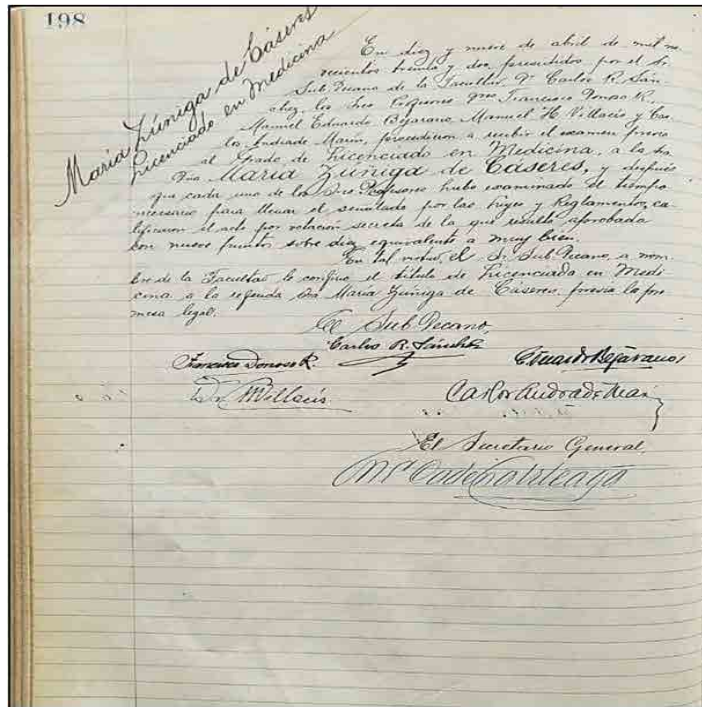 198
María Zúniga de Cáseres
Licenciado en Medicina
En diez y nueve de abril de mil no
vecientos treinta y dos presididos por el Sr.
Sub Decano de la Facultad, Dr Carlos R. Sán
chez, los Sres Profesores Drs Francisco Donoso R.,
Manuel Eduardo Bejarano, Manuel H Villacís y Car
los Andrade Marín, procedieron a recibir el examen previo
al Grado de Licenciado en Medicina, a la Sra
Dña María Zúniga de Cáseres, y después
que cada uno de los Sres Profesores hubo examinado el tiempo
necesario para llenar el señalado por las leyes y Reglamentos, ca
lificaron el acto por votación secreta de la que resultó aprobada
con nueve puntos sobre diez equivalente a muy bien.
En tal virtud, el Sr Sub Decano, a nom
bre de la Facultad le confirió el título de Licenciada en Medi
cina a la referida Sra María Zúniga de Cáseres, previa la pro
mesa legal.
El Sub Decano,
Carlos R. Sánchez
Francisco Donoso R.
Eduardo Bejarano
Dr. MVillacís
Carlos Andrade Marín
El Secretario General,